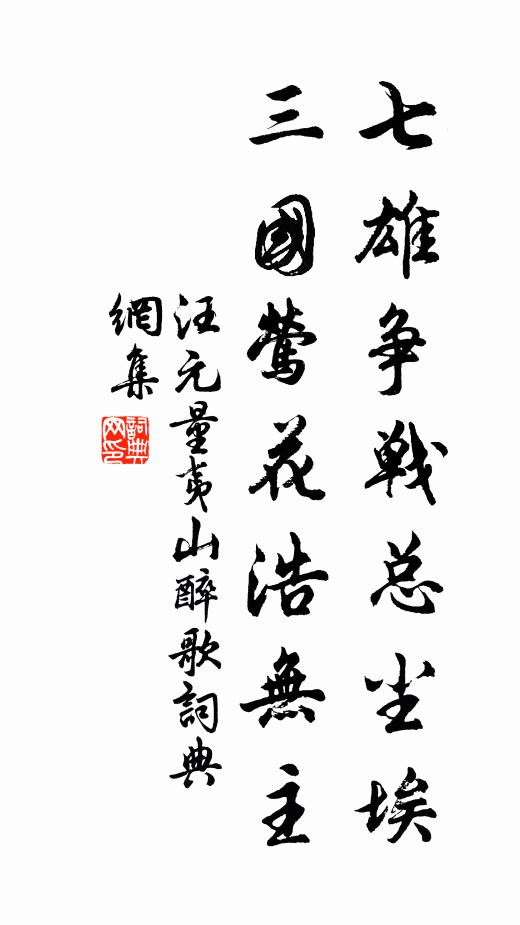 七雄争戦总尘埃
三國鶯花浩無主
汪元量夷山醉歌詞典
網集
詞典网印